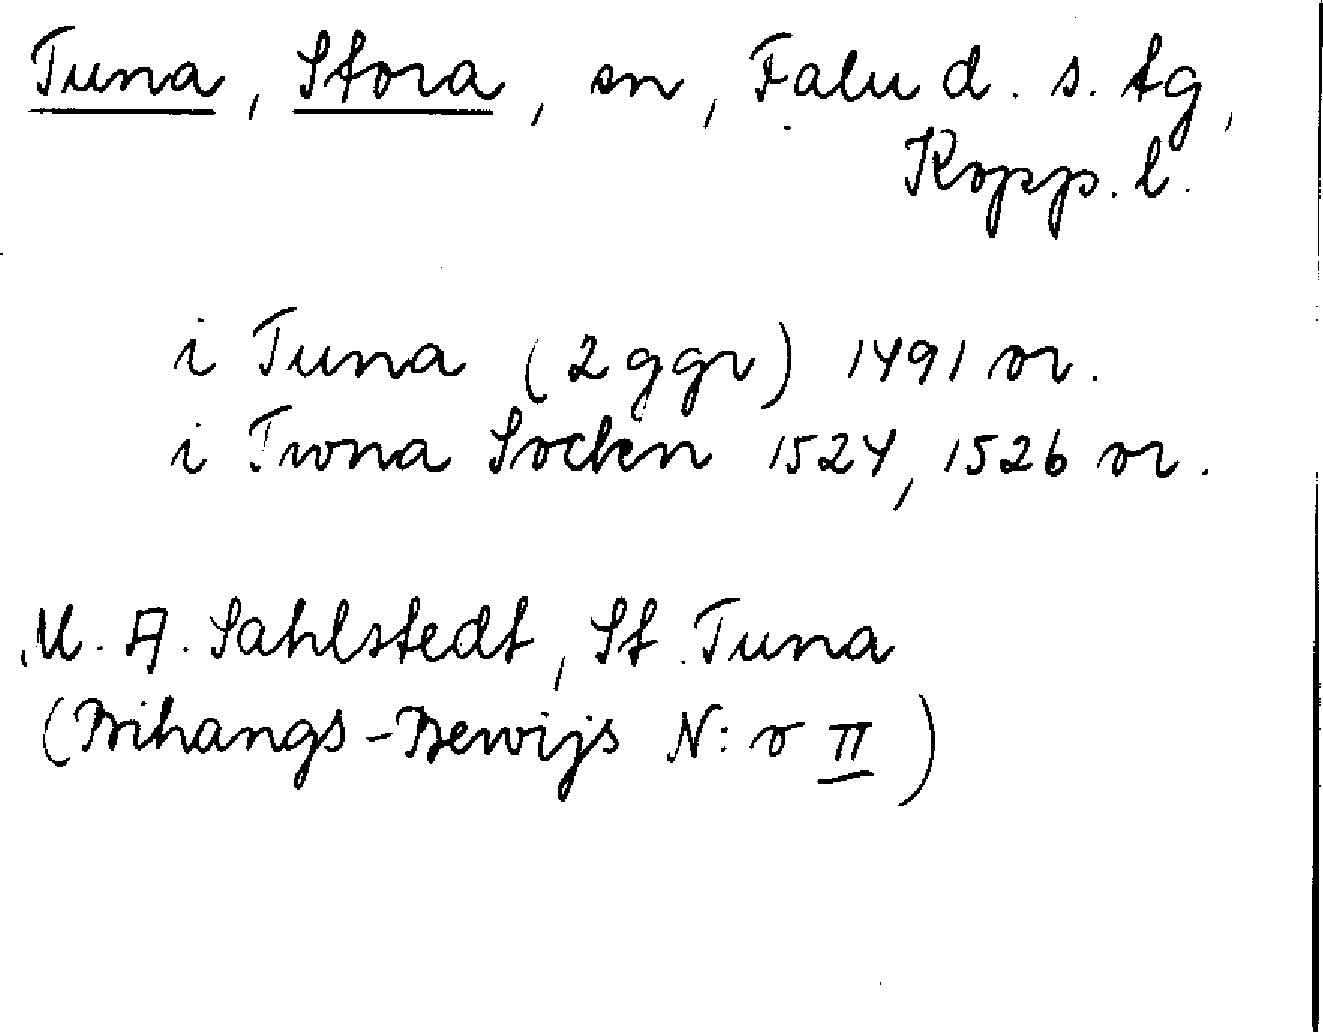 Tuna, Stora, sn, Falu d. s. tg,
Kopp. l.
i Tuna (2 ggr) 1491 or.
i Twna Socken 1524, 1526 or.
U. A. Sahlstedt, St. Tuna
(Bihangs-Bewijs N:o II)